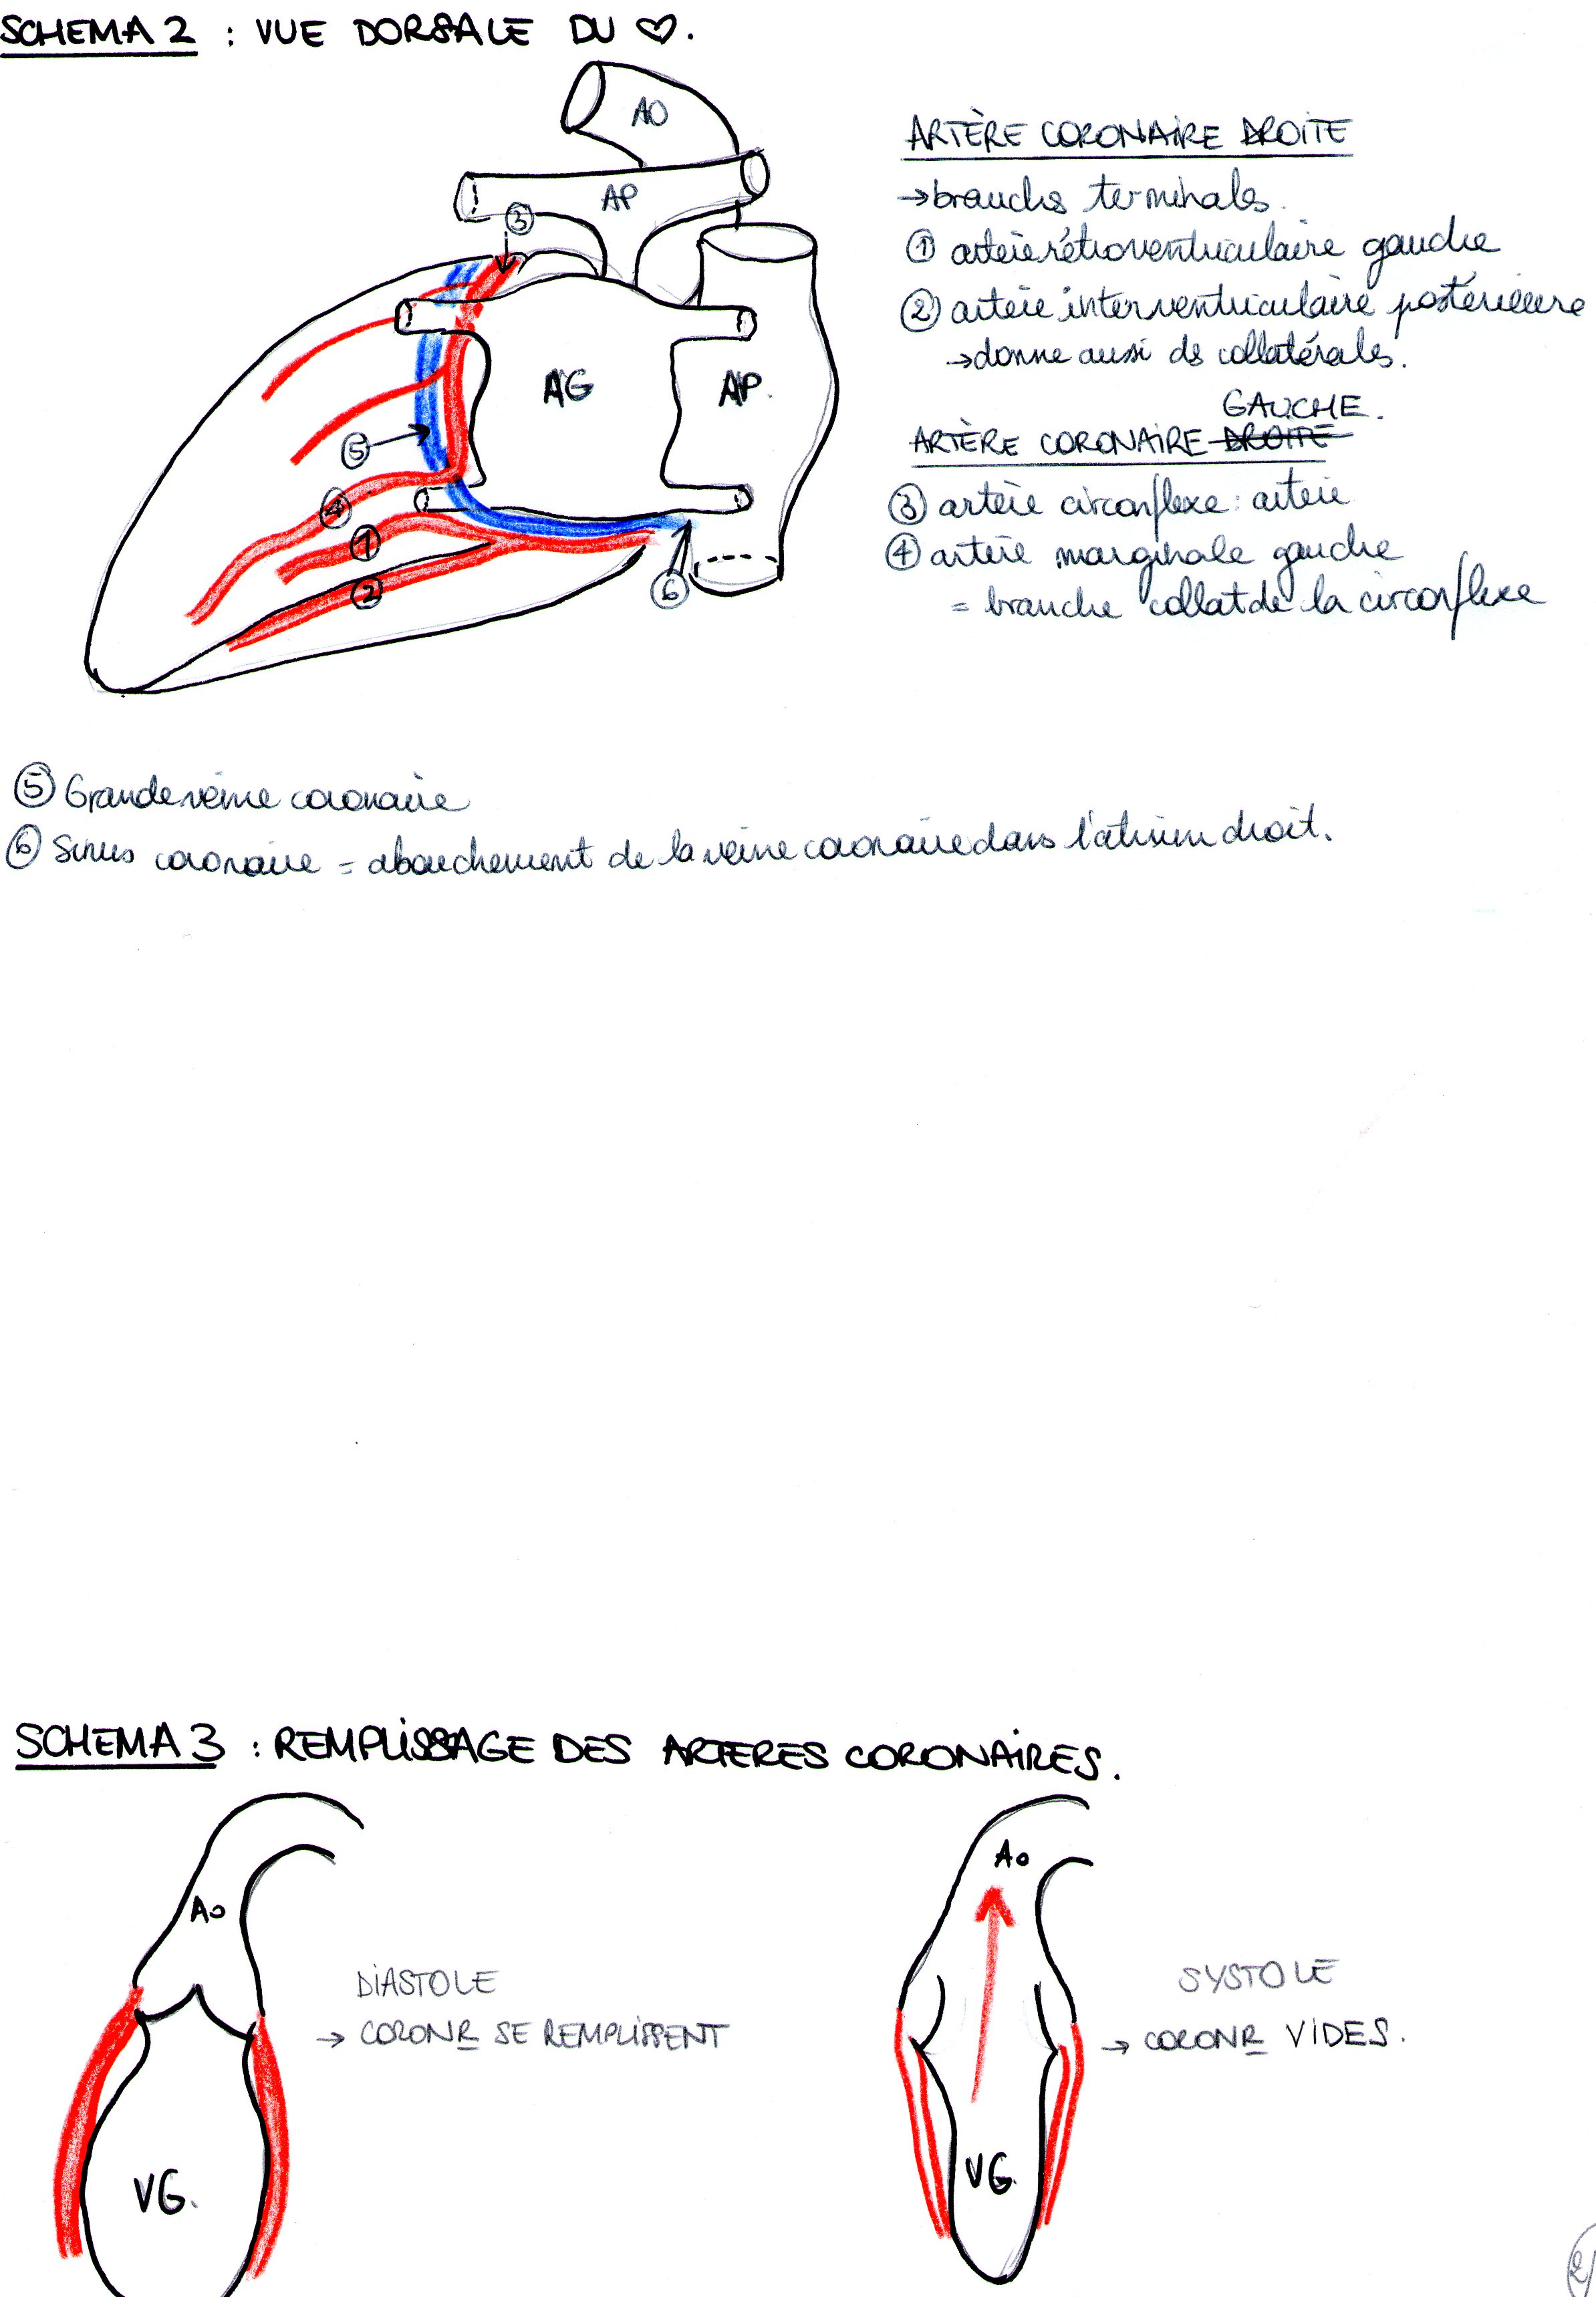 SCHEMA 2 : VUE DORSALE DU ♡.
AO
AP
③
AG
AP.
⑤
④
①
②
⑥
ARTÈRE CORONAIRE DROITE
→ branches terminales.
① artère rétroventriculaire gauche
② artère interventriculaire postérieure
→ donne aussi ds collatérales.
GAUCHE.
ARTÈRE CORONAIRE DROITE
③ artère circonflexe : artère
④ artère marginale gauche
= branche collat de la circonflexe
⑤ Grande veine coronaire
⑥ Sinus coronaire = abouchement de la veine coronaire dans l'atrium droit.
SCHEMA 3 : REMPLISSAGE DES ARTERES CORONAIRES.
Ao
VG.
DIASTOLE
→ CORONR SE REMPLISSENT
Ao
VG.
SYSTOLE
→ CORONR VIDES.
2/